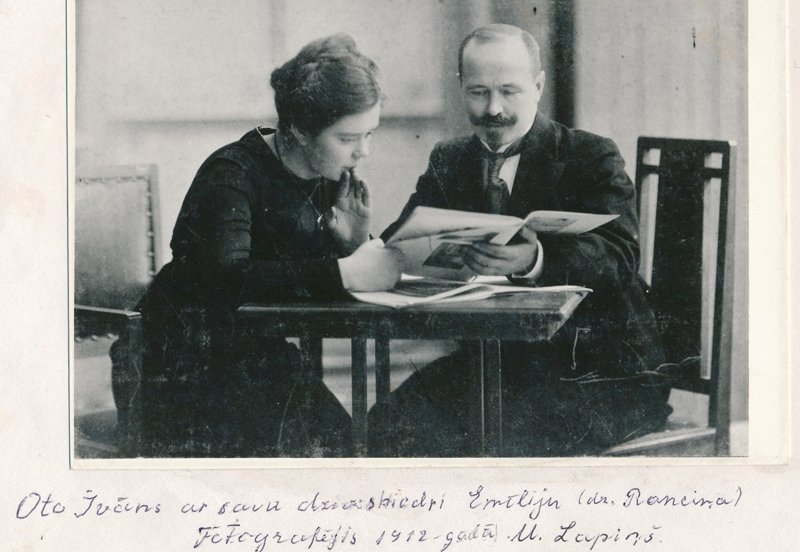 Oto Īvāns ar savu dzīvesbiedri Emīliju (dz. Ranciņa)
Fotografējis 1912-gadā M. Lapiņš.